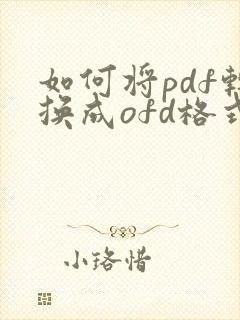 如何将pdf转
换成ofd格式
小珞惜